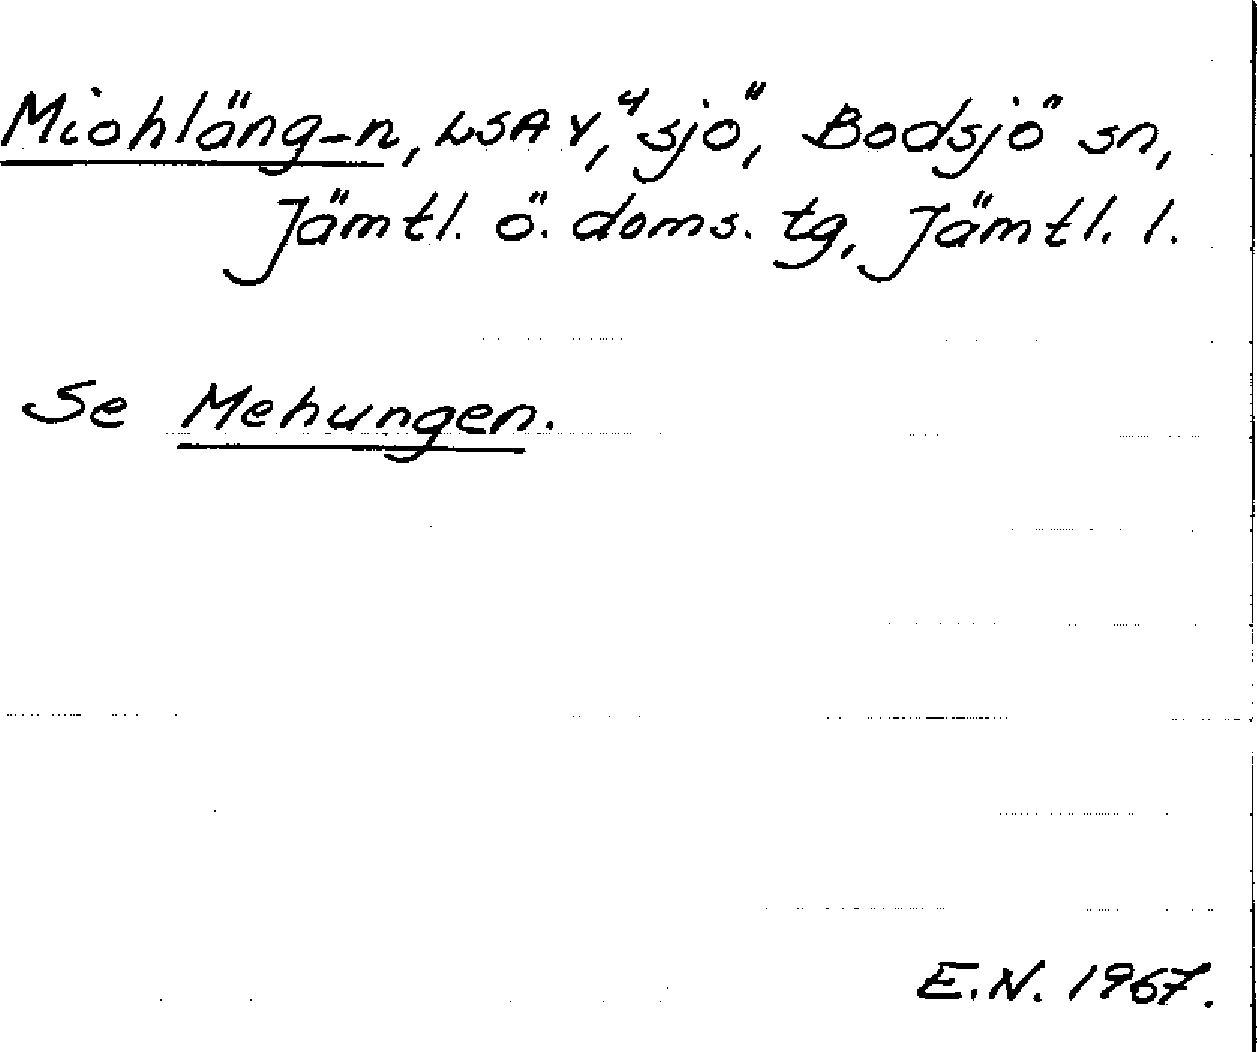 Miohläng-n, LSA Y, "sjö", Bodsjö sn,
Jämtl. ö. doms. tg, Jämtl. l.
Se Mehungen.
E.N. 1967.